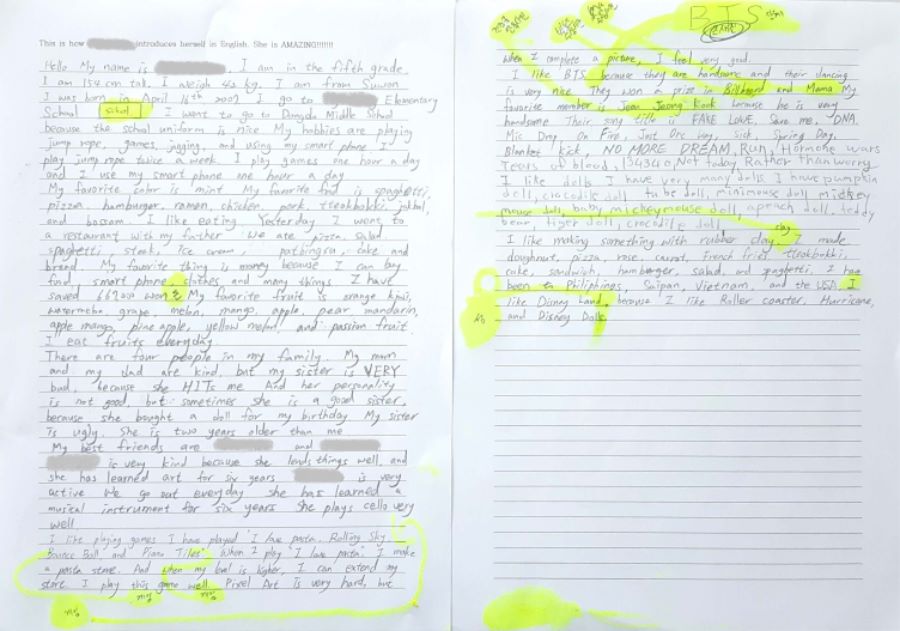 This is how introduces herself in English. She is AMAZING!!!!!!!
Hello My name is I am in the fifth grade.
I am 154 cm tall. I weigh 42 kg. I am from Suwon
I was born in April 16th 2007 I go to Elementary
School school I want to go to Dongda Middle School
because the school uniform is nice My hobbies are playing
jump rope, games, jogging, and using my smart phone I
play jump rope twice a week. I play games one hour a day
and I use my smart phone one hour a day
My favorite color is mint My favorite food is spaghetti,
pizza. hamburger, ramen, chicken, pork, tteokbokki, jokbal,
and bossam. I like eating. Yesterday I went to
a restaurant with my father We ate pizza, salad.
spaghetti, steak, Ice cream, patbingsu, cake and
bread. My favorite thing is money because I can buy
food, smart phone, clothes and many things I have
saved won My favorite fruit is orange kiwi,
watermelon, grape, melon, mango, apple, pear, mandarin,
apple mango, pine apple, yellow melon, and passion fruit.
I eat fruits everyday.
There are four people in my family. My mom
and my dad are kind, but my sister is VERY
bad, because she HITs me And her personality
is not good, but sometimes she is a good sister,
because she bought a doll for my birthday My sister
is ugly. She is two years older than me
My best friends are and
is very kind because she lends things well, and
she has learned art for six years is very
active We go out everyday she has learned a
musical instrument for six years She plays cello very
well.
I like playing games I have played 'I love pasta. Rolling Sky
Bounce Ball, and Piano Tiles' When I play 'I love pasta' I make
a pasta store. And when my level is higher, I can extend my
store. I play this game well Pixel Art Is very hard, but
BTS
When I complete a picture, I feel very good.
I like BTS because they are handsome and their dancing
is very nice They won a prize in Billboard and Mama My
favorite member is Jeon Jeong Kook because he is very
handsome Their song title is FAKE LOVE, Save me, DNA.
Mic Drop On Fire, Just One Day, Sick, Spring Day.
Blanket kick, NO MORE DREAM, Run, Hormone wars
Tears of blood, 134340, Not today Rather than worry
I like dolls I have very many dolls I have pumpkin
doll, crocodile doll, tube doll, minimouse doll mickey
mouse doll, baby mickeymouse doll, apeach doll, teddy
bear, tiger doll, crocodile doll
clay
I like making something with rubber clay. I made
doughnut, pizza, rose, carrot, french fries, tteokbokki,
cake, sandwich, hamburger, salad, and spaghetti. I have
been to Philippines, Saipan, Vietnam, and the USA, I
like Disney Land, because I like Roller coaster, Hurricane,
and Disney Dolls.